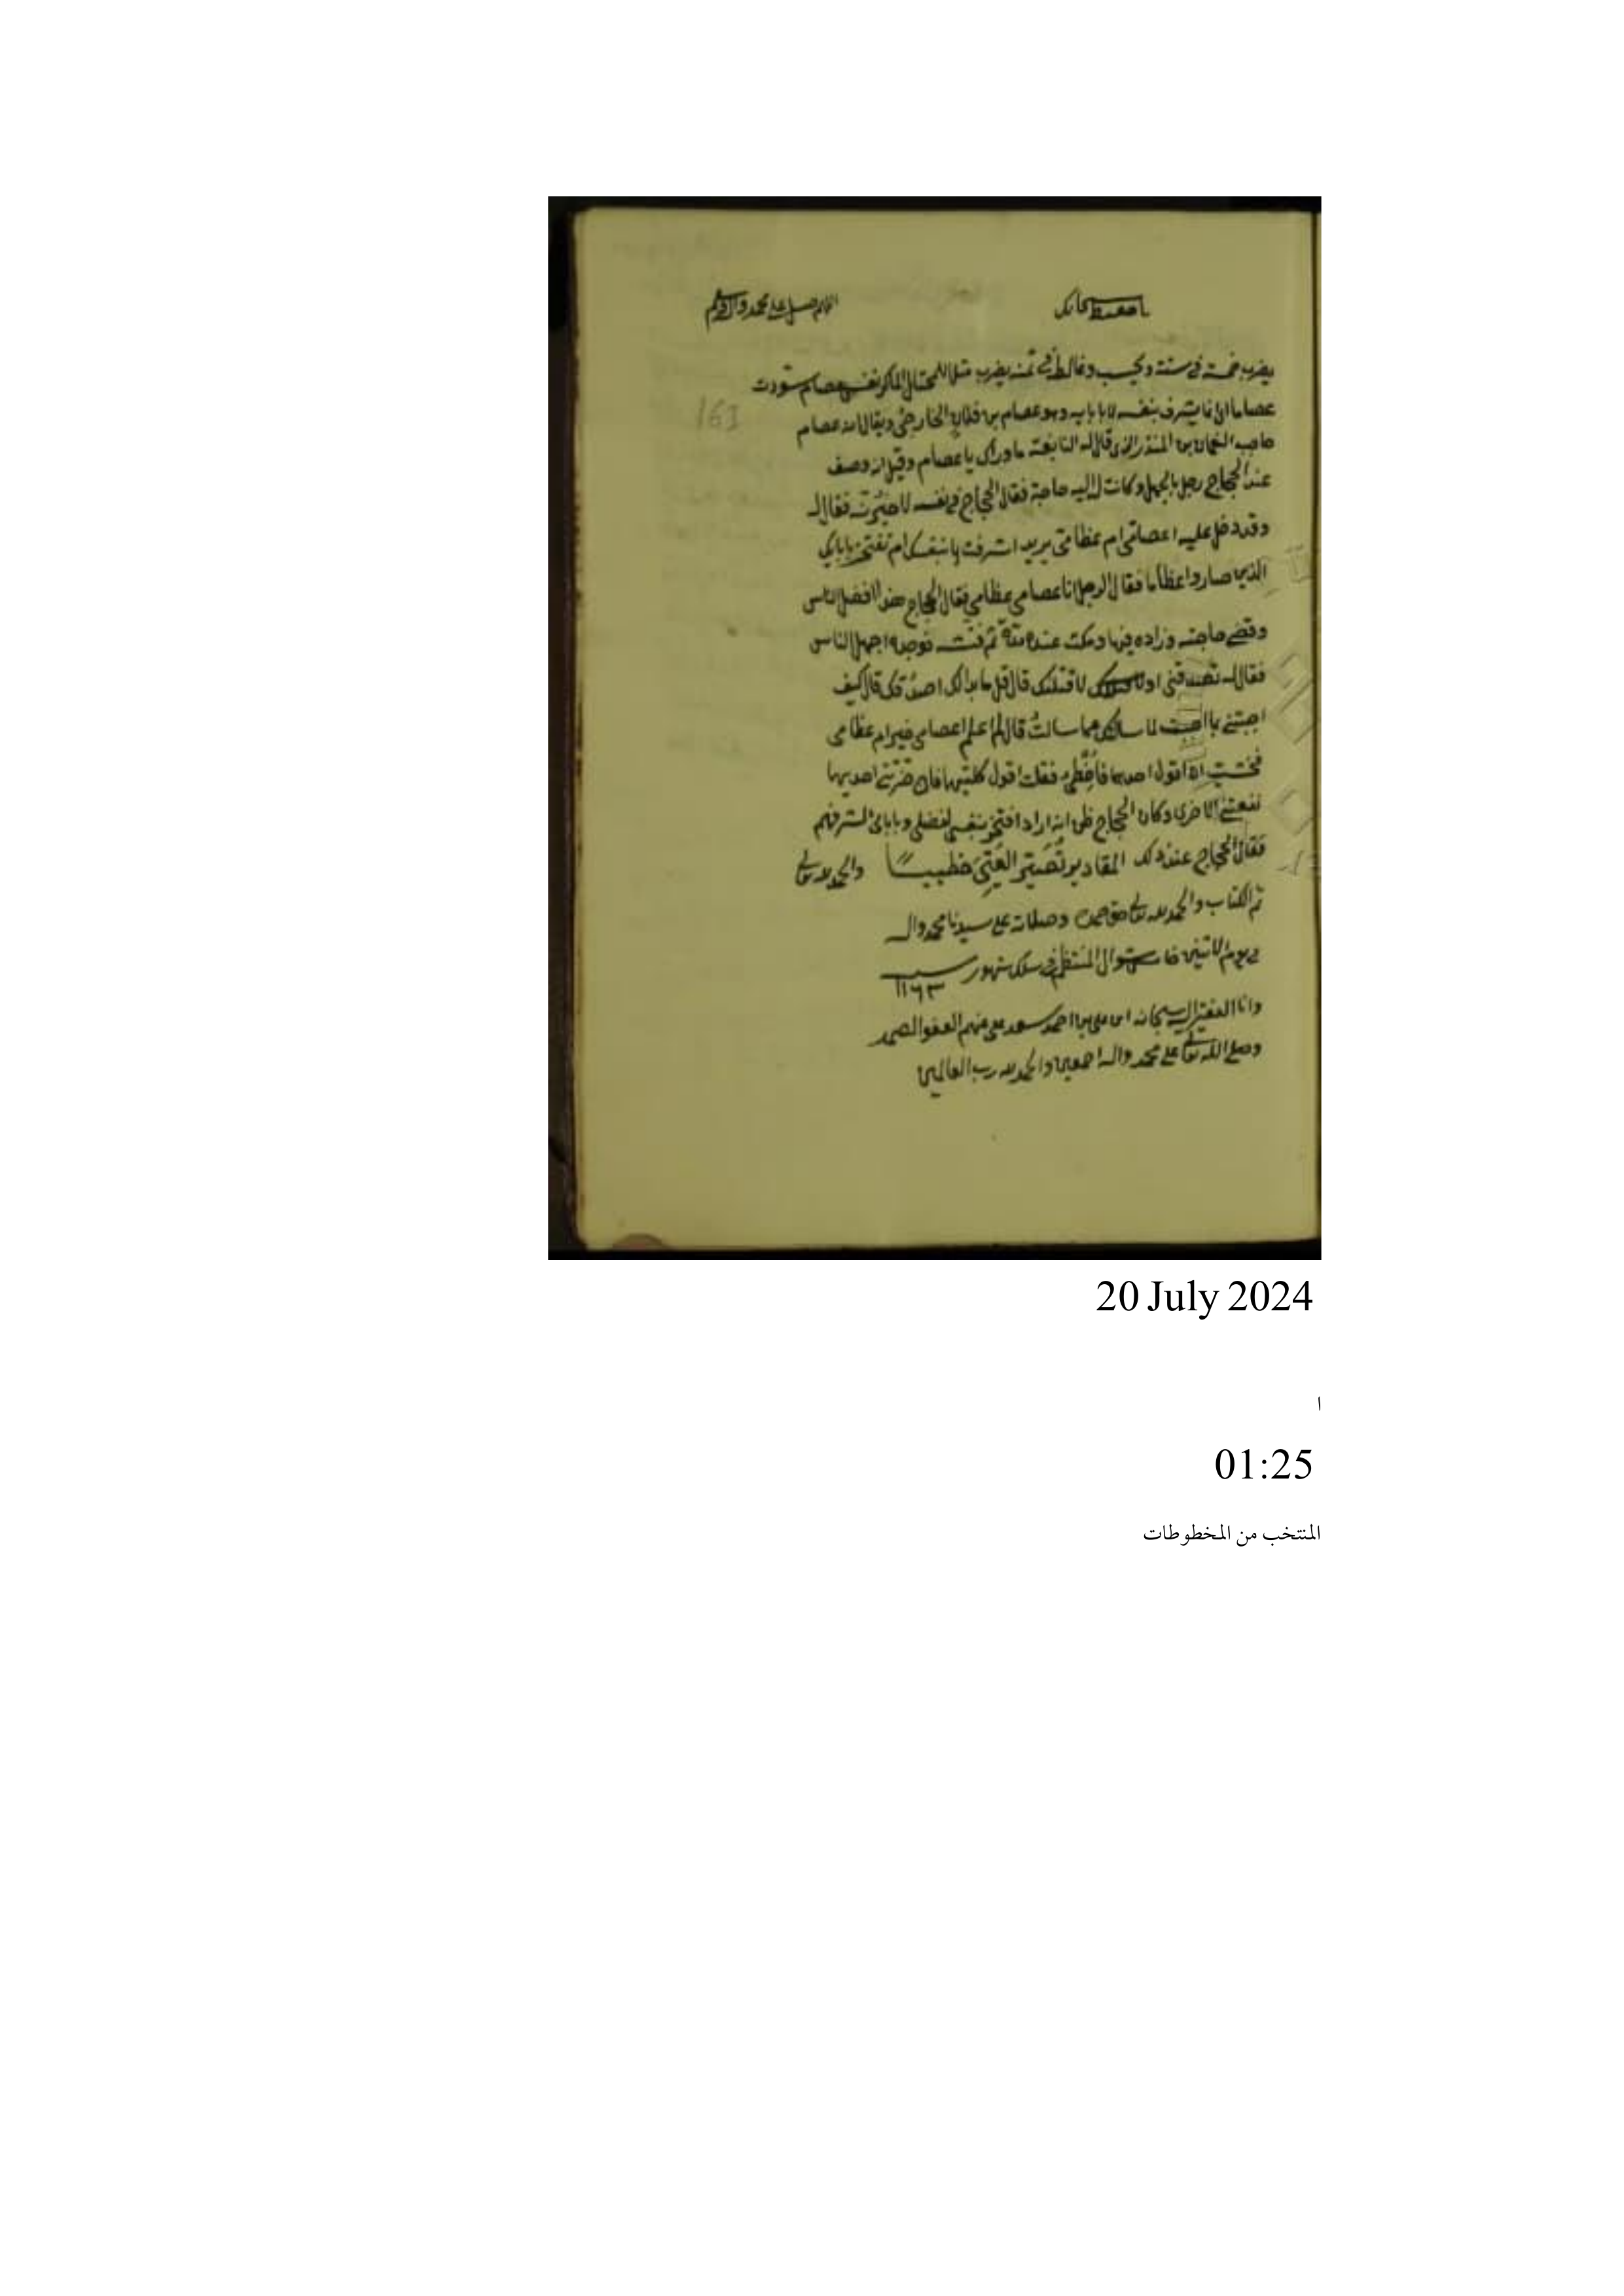 اللهم صل على محمد وآله وسلم
يضرب خمسة في ستة ويحسب وغالط في ثمنه يضرب مثلا للمحتال الماكر نفس عصام سودت
عصاما اي انما يشرف بنفسه لا بابايه وهو عصام بن الخارجي ويقال انه عصام
حاجب النعمان بن المنذر الذي قال له النابغة ما وراك يا عصام وقيل انه وصف
عند الحجاج رجل بالجهل وكانت له اليه حاجة فقال الحجاج في نفسه لاخبرنه فقال له
وقد دخل عليه اعصامي ام عظامي يريد اشرفت بنفسك ام تفتخر بابايك
الذين صاروا عظاما فقال الرجل انا عصامي عظامي فقال الحجاج هذا افضل الناس
وقضى حاجته وزاده فيها ومكث عنده مدة ثم فتشه فوجده اجهل الناس
فقال له تصدقني او لاقتلنك قال قل ما بدا لك اصدقك قال كيف
اجبتني بما اجبت لما سالتك عما سالت قال لم اعلم اعصامي خير ام عظامي
فخشيت ان اقول احدهما فاخطي فقلت اقول كليتهما فان ضرتني احديهما
نفعتني الاخرى وكان الحجاج ظن انه اراد افتخر بنفسي لفضلي وبابائي لشرفهم
فقال الحجاج عند ذلك المقادير تصير العي خطيبا والحمد لله تعالى
تم الكتاب والحمد لله تعالى حق حمده وصلاته على سيدنا محمد واله
في يوم الاثنين شوال المنتظم في سلك شهور سنة
١١٦٣
وانا الفقير الى الله سبحانه بن احمد العفو الصمد
وصلى الله تعالى على محمد واله اجمعين والحمد لله رب العالمين
161
20 July 2024
ا
01:25
المنتخب من المخطوطات